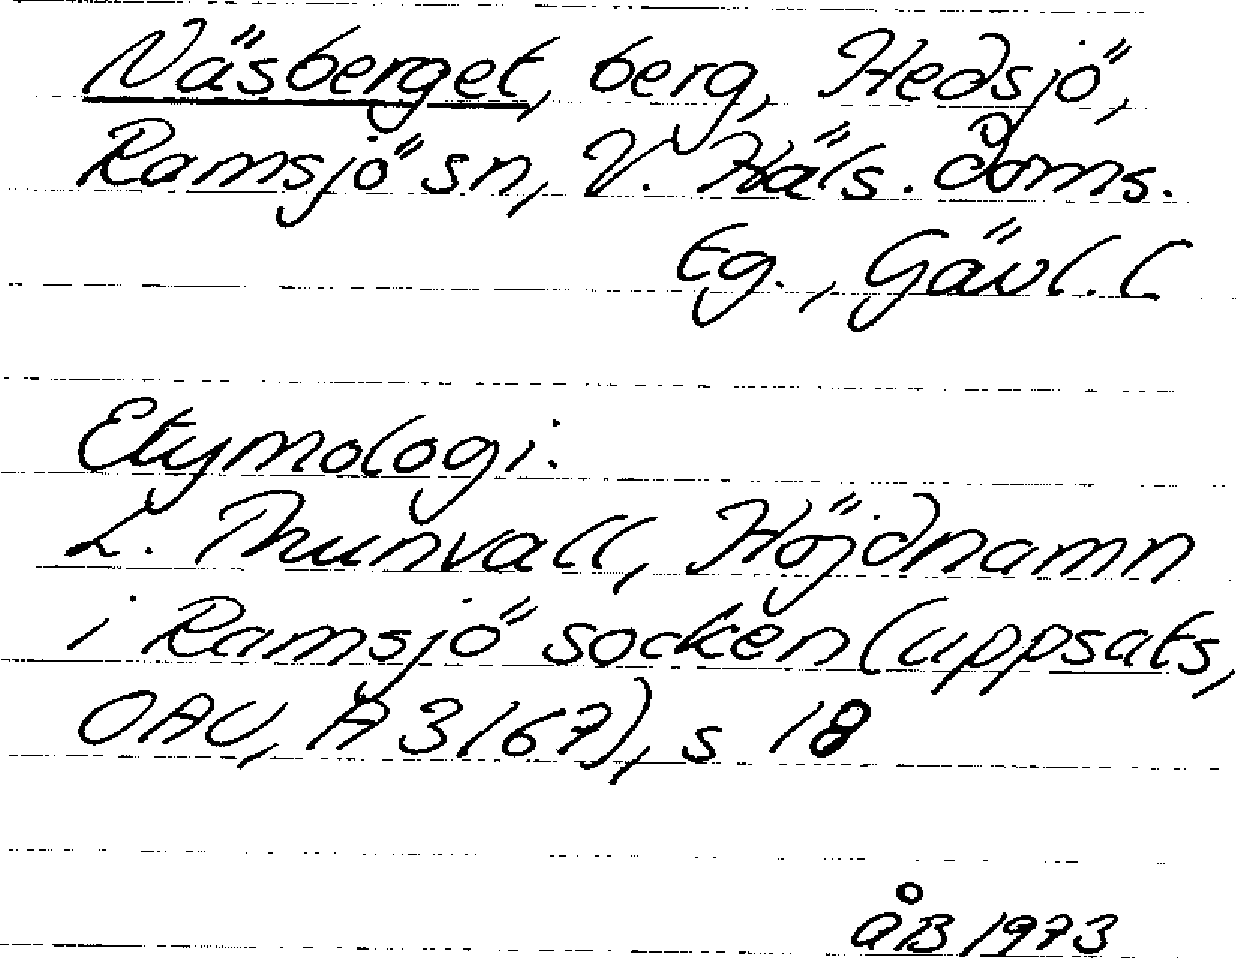 Näsberget, berg, Hedsjö,
Ramsjö sn, V. Häls. doms.
Eg., Gävl. l
Etymologi:
L. Thunvall, Höjdnamn
i Ramsjö socken (uppsats,
OAU, A 3167), s 18
ÅB 1973